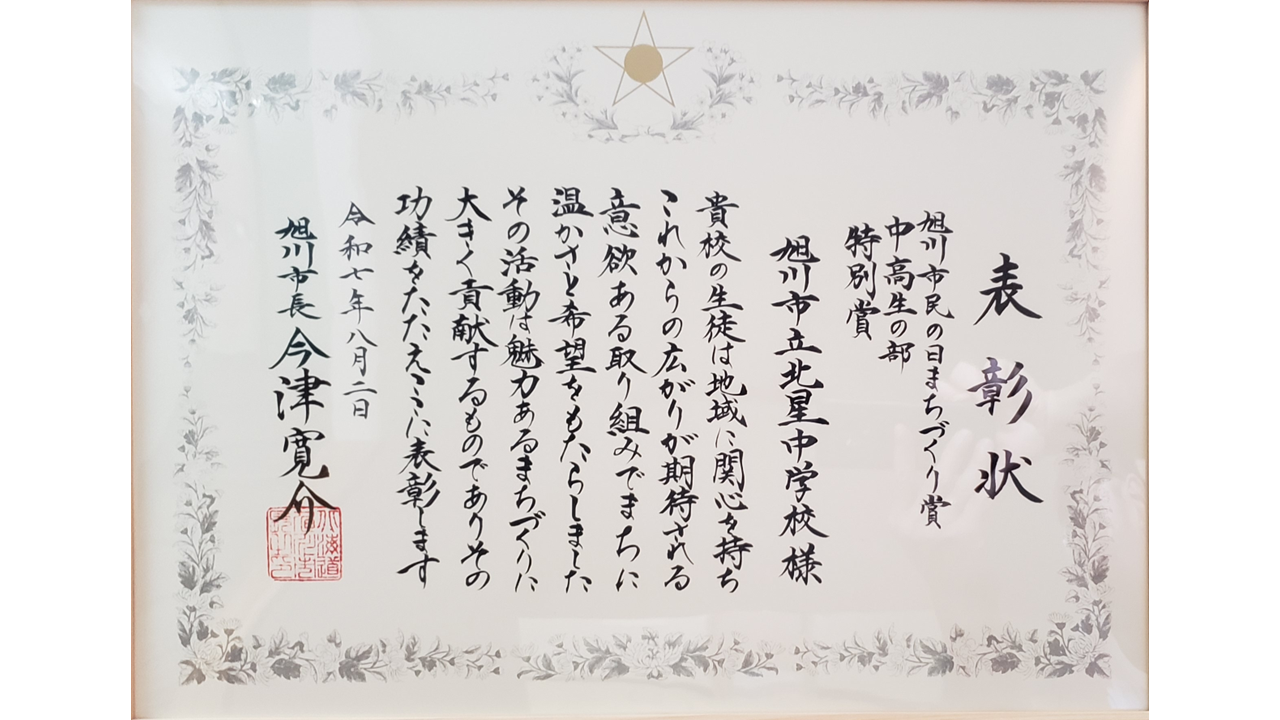 表彰状
旭川市民の日まちづくり賞
中高生の部
特別賞
旭川市立北星中学校様
貴校の生徒は地域に関心を持ち
これからの広がりが期待される
意欲ある取り組みでまちに
温かさと希望をもたらしました
その活動は魅力あるまちづくりに
大きく貢献するものでありその
功績をたたえここに表彰します
令和七年八月二日
旭川市長 今津寛介